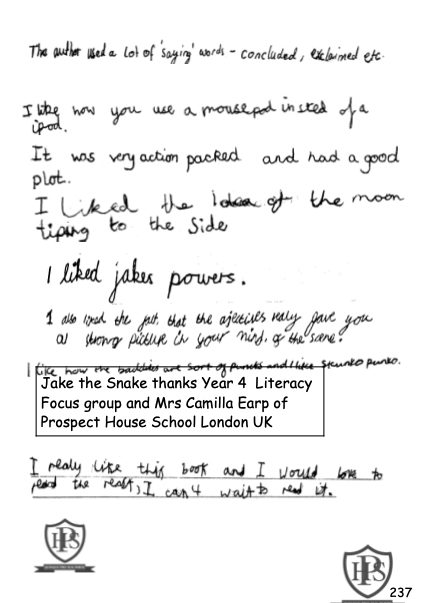 The author used a lot of 'saying' words - concluded, exclaimed etc.
I like how you use a mousepod insted of a
ipod.
It was very action packed and had a good
plot.
I Liked the Idea of the moon
tiping to the Side
I liked jakes powers.
I also liked the fact that the ajectives realy gave you
a strong picture in your mind, of the scene!
I like how the baddies are sort of punks and I like Skunko punko.
Jake the Snake thanks Year 4 Literacy
Focus group and Mrs Camilla Earp of
Prospect House School London UK
I realy like this book and I would love to
read the rest, I can't wait to read it.
HPS
HPS
237